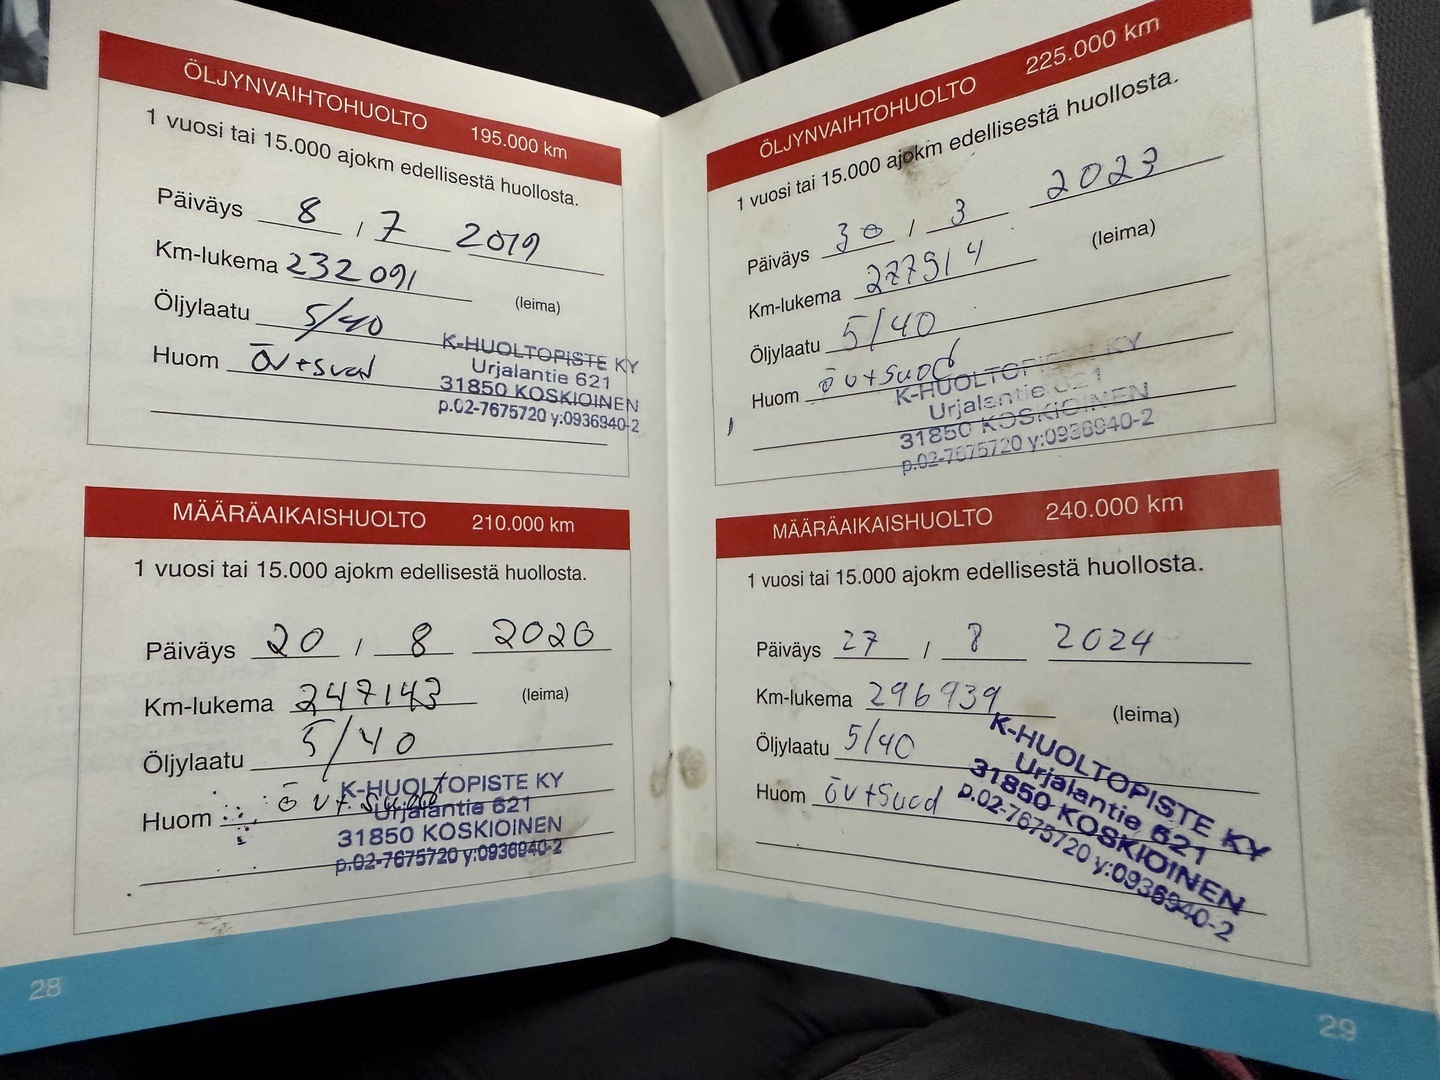 ÖLJYNVAIHTOHUOLTO 195.000 km
1 vuosi tai 15.000 ajokm edellisestä huollosta.
Päiväys 8 / 7 2019
Km-lukema 232091
Öljylaatu 5/40 (leima)
Huom öv+suod
K-HUOLTOPISTE KY
Urjalantie 621
31850 KOSKIOINEN
p.02-7675720 y:0936940-2
MÄÄRÄAIKAISHUOLTO 210.000 km
1 vuosi tai 15.000 ajokm edellisestä huollosta.
Päiväys 20 / 8 2020
Km-lukema 247143 (leima)
Öljylaatu 5/40
Huom öv+suod
K-HUOLTOPISTE KY
Urjalantie 621
31850 KOSKIOINEN
p.02-7675720 y:0936940-2
28
ÖLJYNVAIHTOHUOLTO 225.000 km
1 vuosi tai 15.000 ajokm edellisestä huollosta.
Päiväys 30 / 3 2023
Km-lukema 277914 (leima)
Öljylaatu 5/40
Huom öv+suod
K-HUOLTOPISTE KY
Urjalantie 621
31850 KOSKIOINEN
p.02-7675720 y:0936940-2
MÄÄRÄAIKAISHUOLTO 240.000 km
1 vuosi tai 15.000 ajokm edellisestä huollosta.
Päiväys 27 / 8 2024
Km-lukema 296939 (leima)
Öljylaatu 5/40
Huom öv+suod
K-HUOLTOPISTE KY
Urjalantie 621
31850 KOSKIOINEN
p.02-7675720 y:0936940-2
29